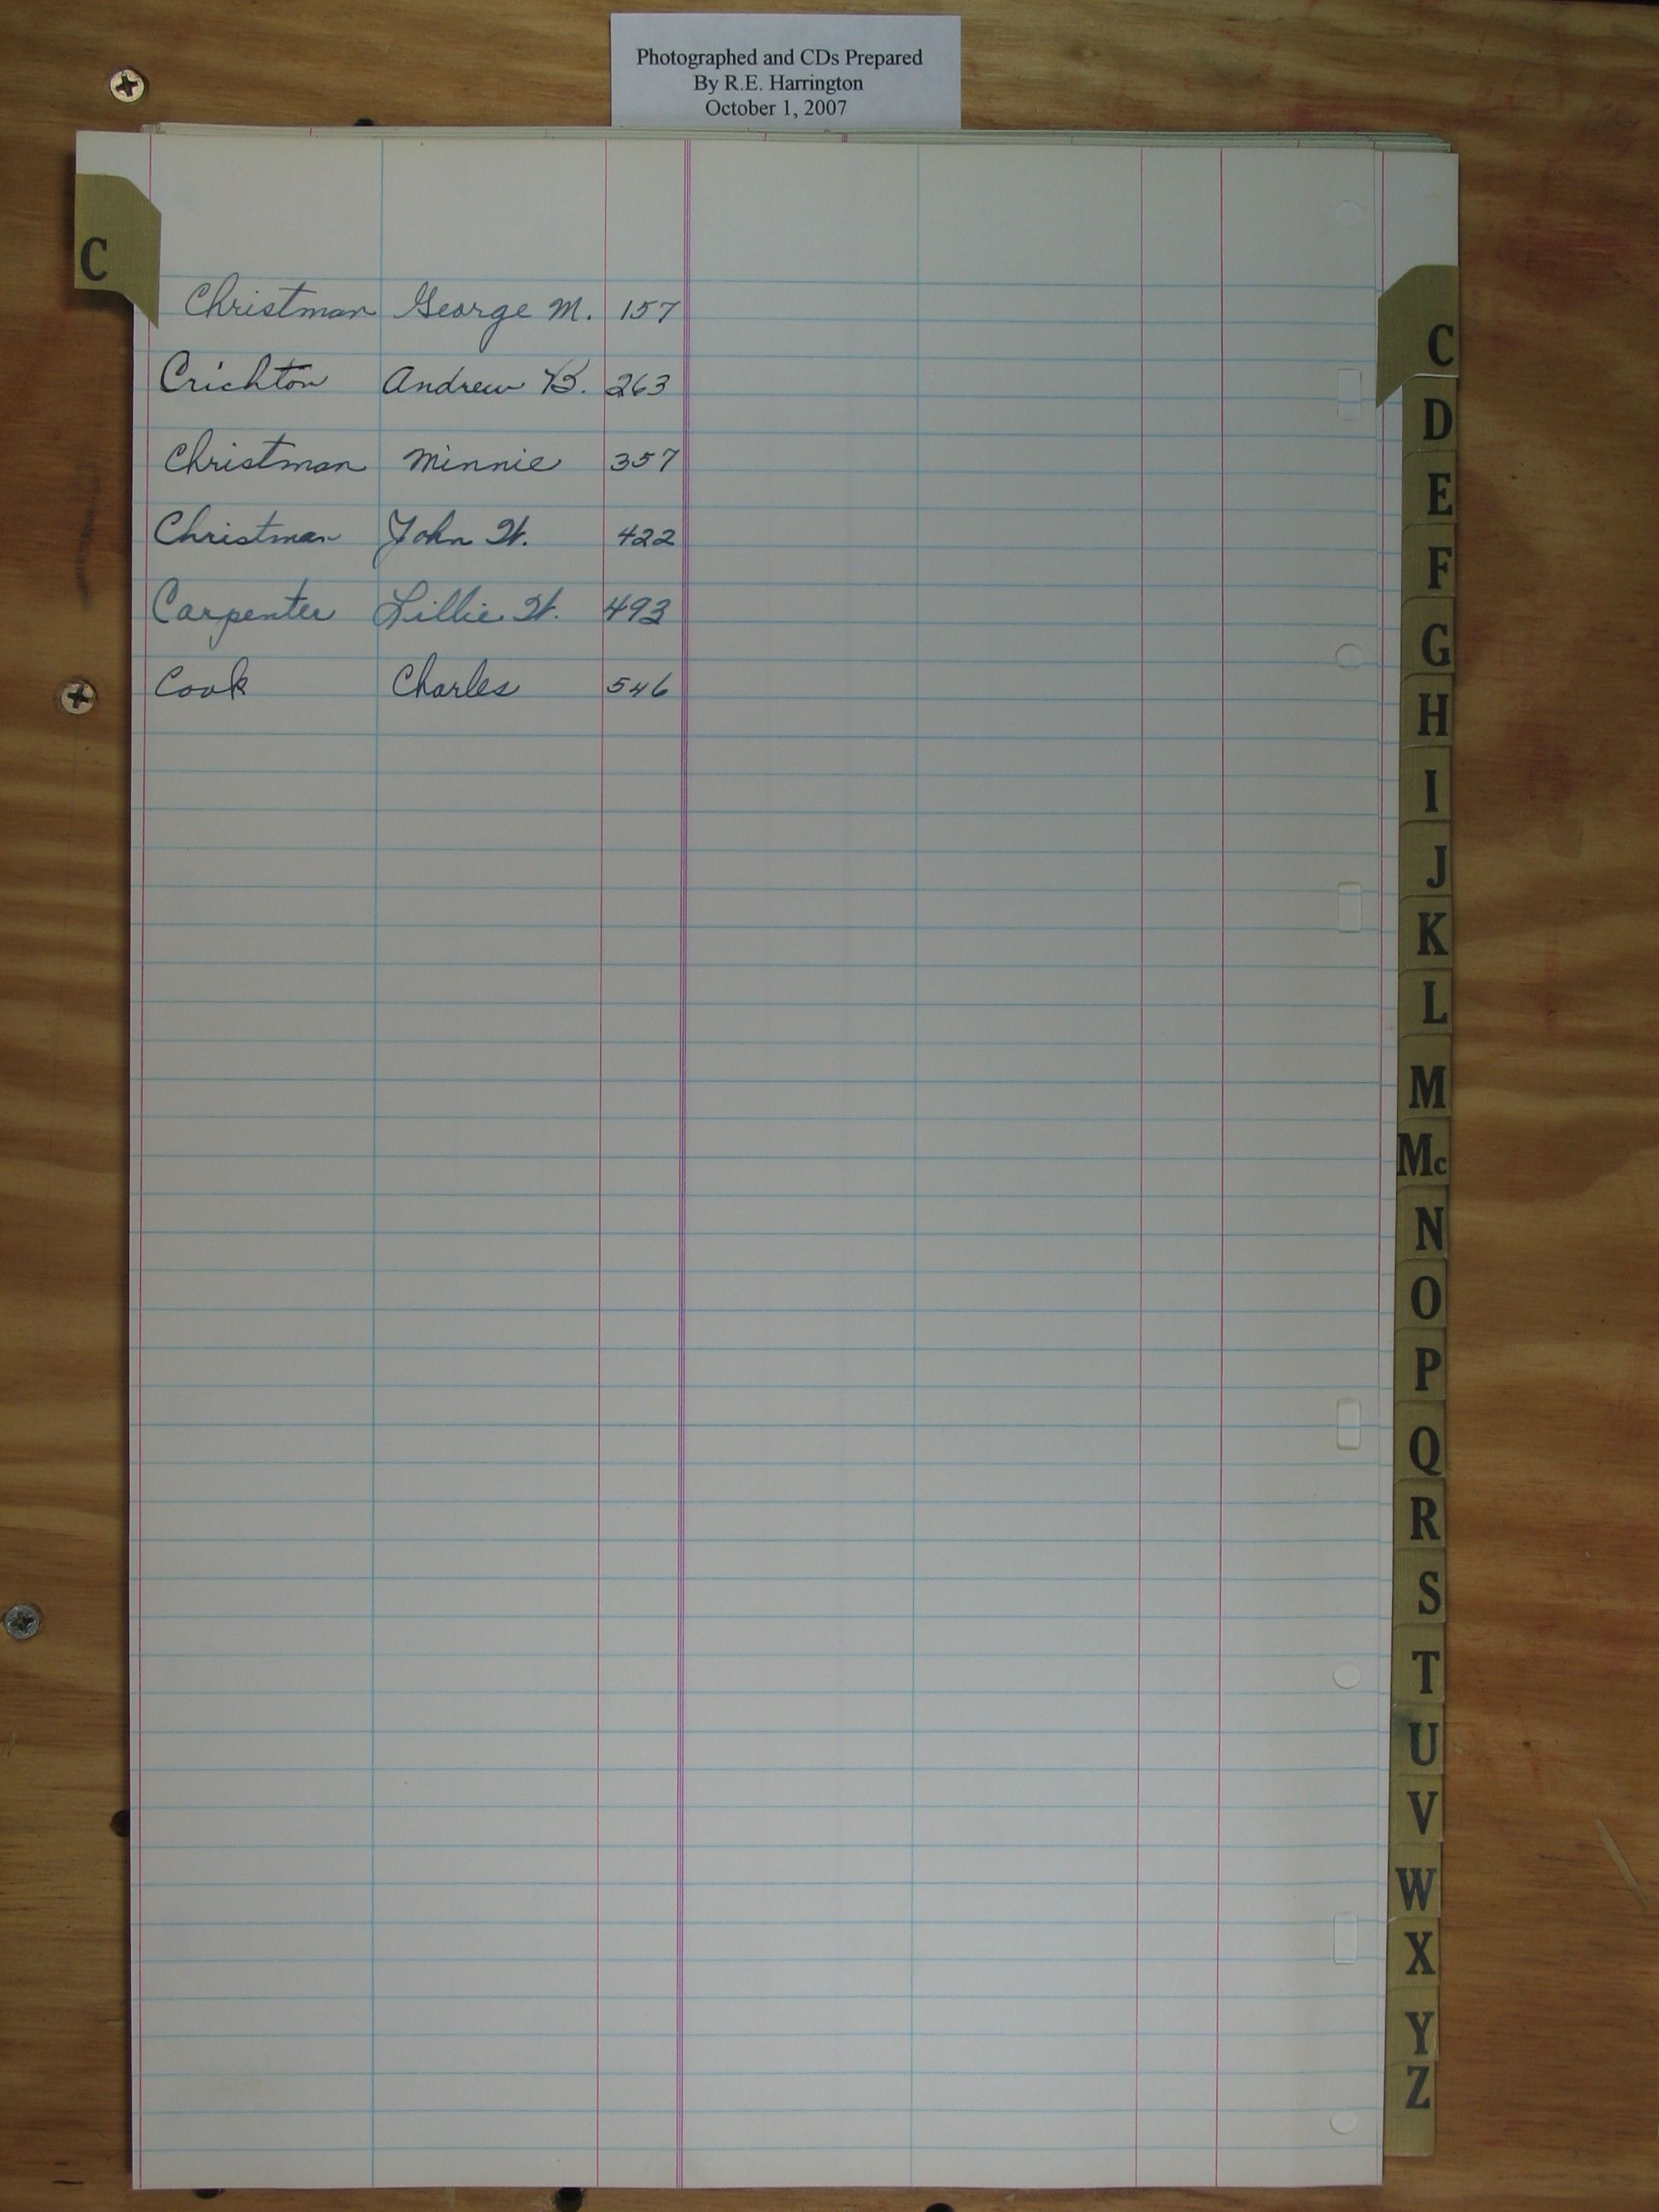 Photographed and CDs Prepared
By R.E. Harrington
October 1, 2007
C
Christman George M. 157
Crichton Andrew B. 263
Christman Minnie 357
Christman John W. 422
Carpenter Lillie W. 493
Cook Charles 546
C
D
E
F
G
H
I
J
K
L
M
Mc
N
O
P
Q
R
S
T
U
V
W
X
Y
Z